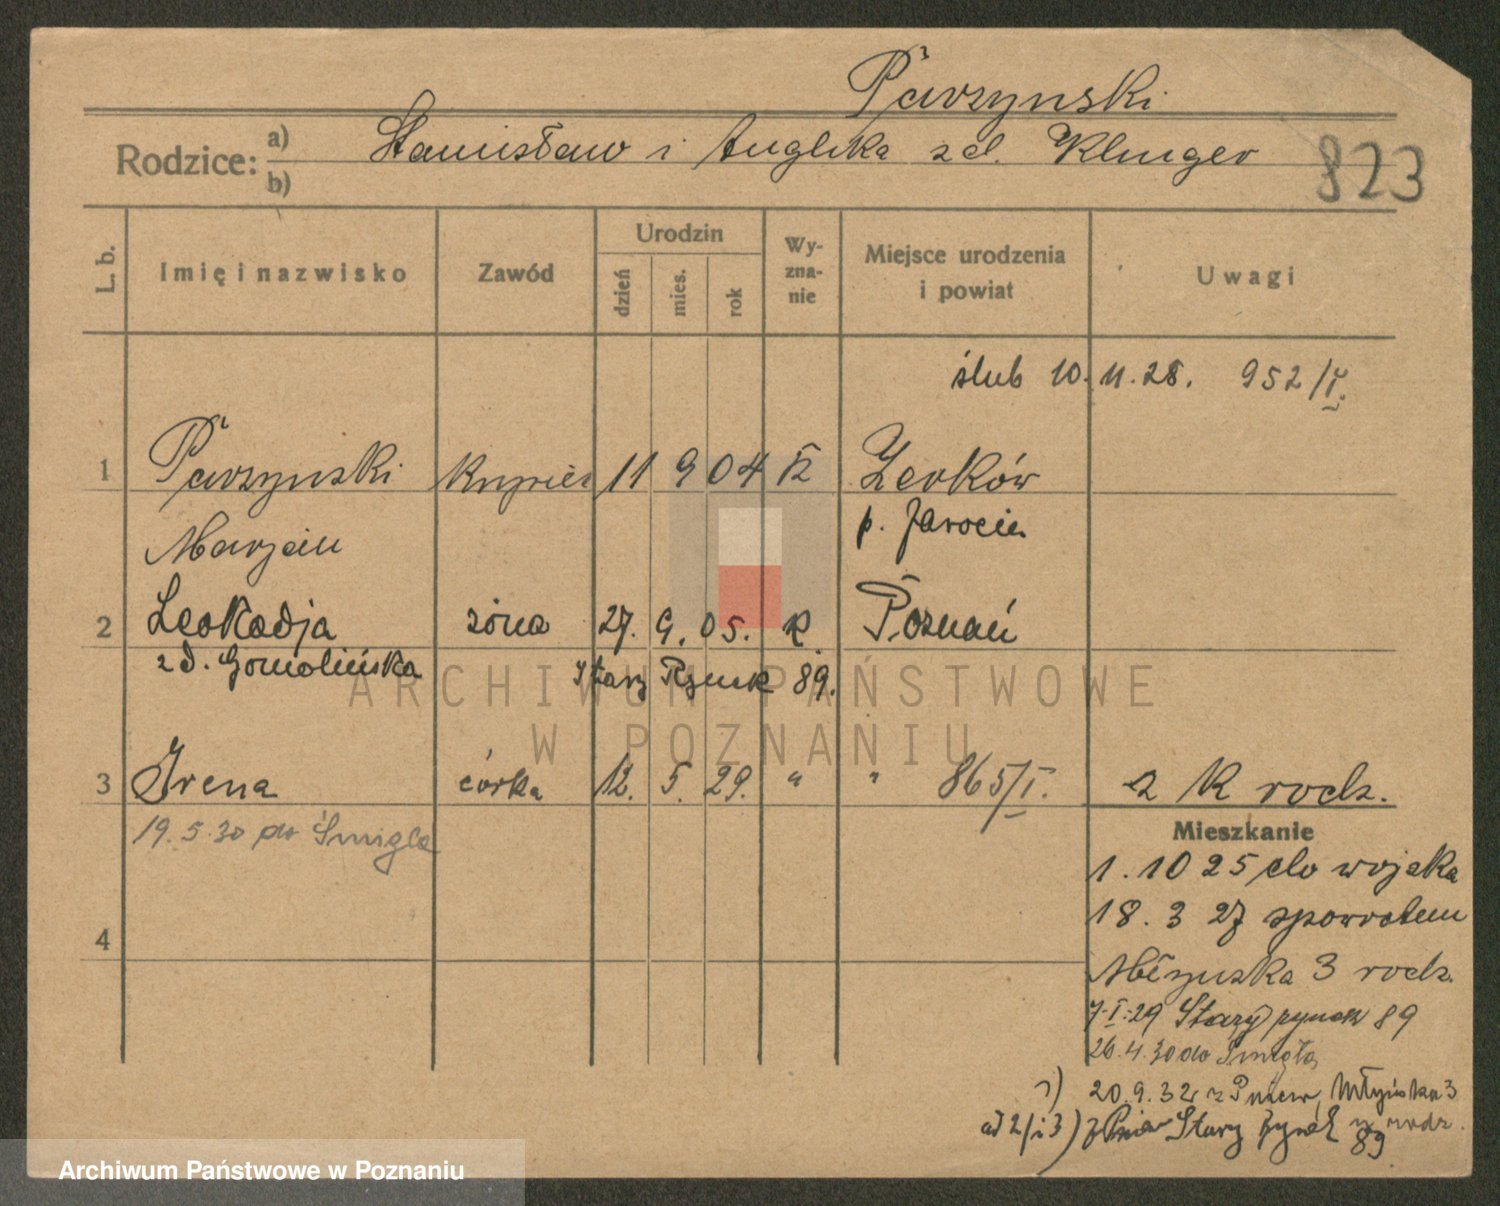 Parzynski
Rodzice: a) Stanisław i Anglika zd. Klinger
b)
823
L. b. Imię i nazwisko Zawód Urodzin dzień mies. rok Wyznanie Miejsce urodzenia i powiat Uwagi
ślub 10.11.28. 952/I.
1 Parzynski Kupiec 11 9 04 K Żerków
Marjan p. Jarocin
2 Leokadja żona 27. 9. 05. K. Poznań
zd. Gomolińska Stary Rynek 89.
3 Irena córka 12. 5. 29. " " 865/I. z K rodz.
19.5.30 do Śmigla
Mieszkanie
1.10 25 do wojska
18. 3 27 spowrotem
4
Młyńska 3 rodz.
7.I.29 Stary rynek 89
26.4.30 do Śmigla
1) 20.9.32 z Pniew, Młyńska 3
ad 2/i 3) z Pniew Stary Rynek 89
rodz.
ARCHIWUM PAŃSTWOWE
W POZNANIU
Archiwum Państwowe w Poznaniu